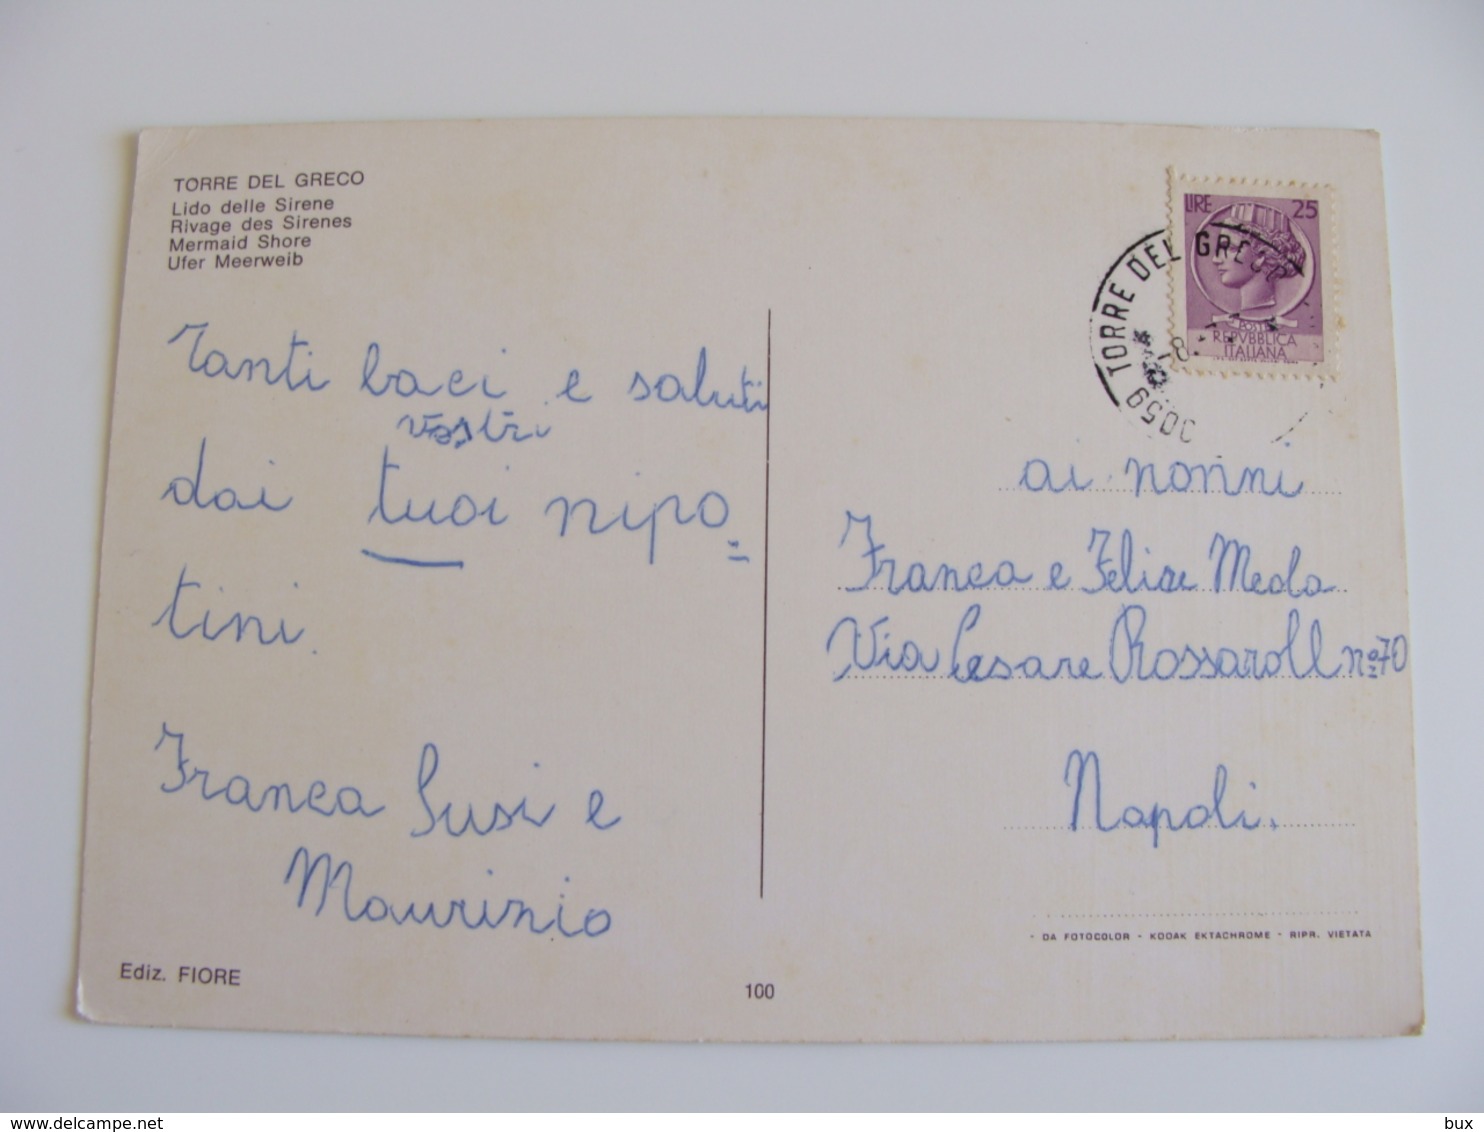 TORRE DEL GRECO
Lido delle Sirene
Rivage des Sirenes
Mermaid Shore
Ufer Meerweib
Tanti baci e saluti
vostri
dai tuoi nipo=
tini.
Franca Susi e
Maurizio
Ediz. FIORE
100
LIRE 25
POSTE
REPVBBLICA
ITALIANA
TORRE DEL GRECO
ai nonni
Franca e Felice Meola
Via Cesare Rossaroll nº70
Napoli.
- DA FOTOCOLOR - KODAK EKTACHROME - RIPR. VIETATA
bux